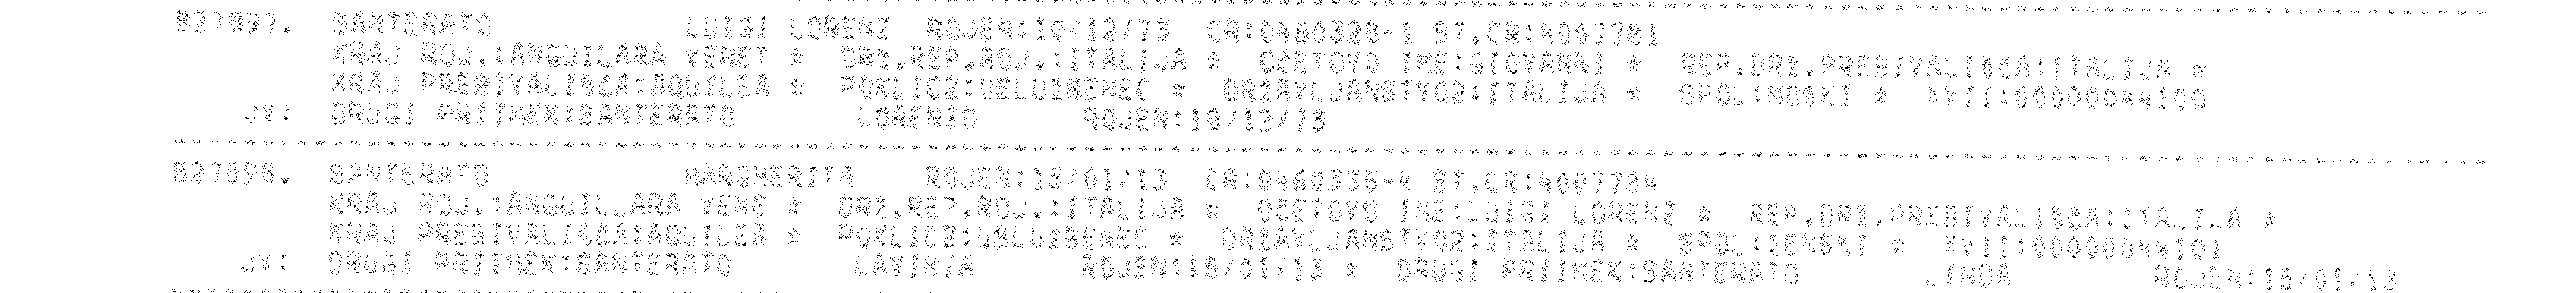 827897. SANTERATO LUIGI LORENZ ROJEN:10/12/73 CR:0460328-1 ST.CR:4007781
KRAJ ROJ.:ANGUILARA VENET * DRZ.REP.ROJ.:ITALIJA * OCETOVO IME:GIOVANNI * REP.DRZ.PREBIVALISCA:ITALIJA *
KRAJ PREBIVALISCA:AQUILEA * POKLIC2:USLUZBENEC * DRZAVLJANSTVO2:ITALIJA * SPOL:MOSKI * XVII:00000044100
JV: DRUGI PRIIMEK:SANTERATO LORENZO ROJEN:10/12/73
827898. SANTERATO MARGHERITA ROJEN:15/01/13 CR:0460335-4 ST.CR:4007784
KRAJ ROJ.:ANGUILLARA VENE * DRZ.REP.ROJ.:ITALIJA * OCETOVO IME:LUIGI LORENZ * REP.DRZ.PREBIVALISCA:ITALIJA *
KRAJ PREBIVALISCA:AQUILEA * POKLIC2:USLUZBENEC * DRZAVLJANSTVO2:ITALIJA * SPOL:ZENSKI * XVII:00000044101
JV: DRUGI PRIIMEK:SANTERATO LAVINIA ROJEN:15/01/13 * DRUGI PRIIMEK:SANTERATO LINDA ROJEN:15/01/13